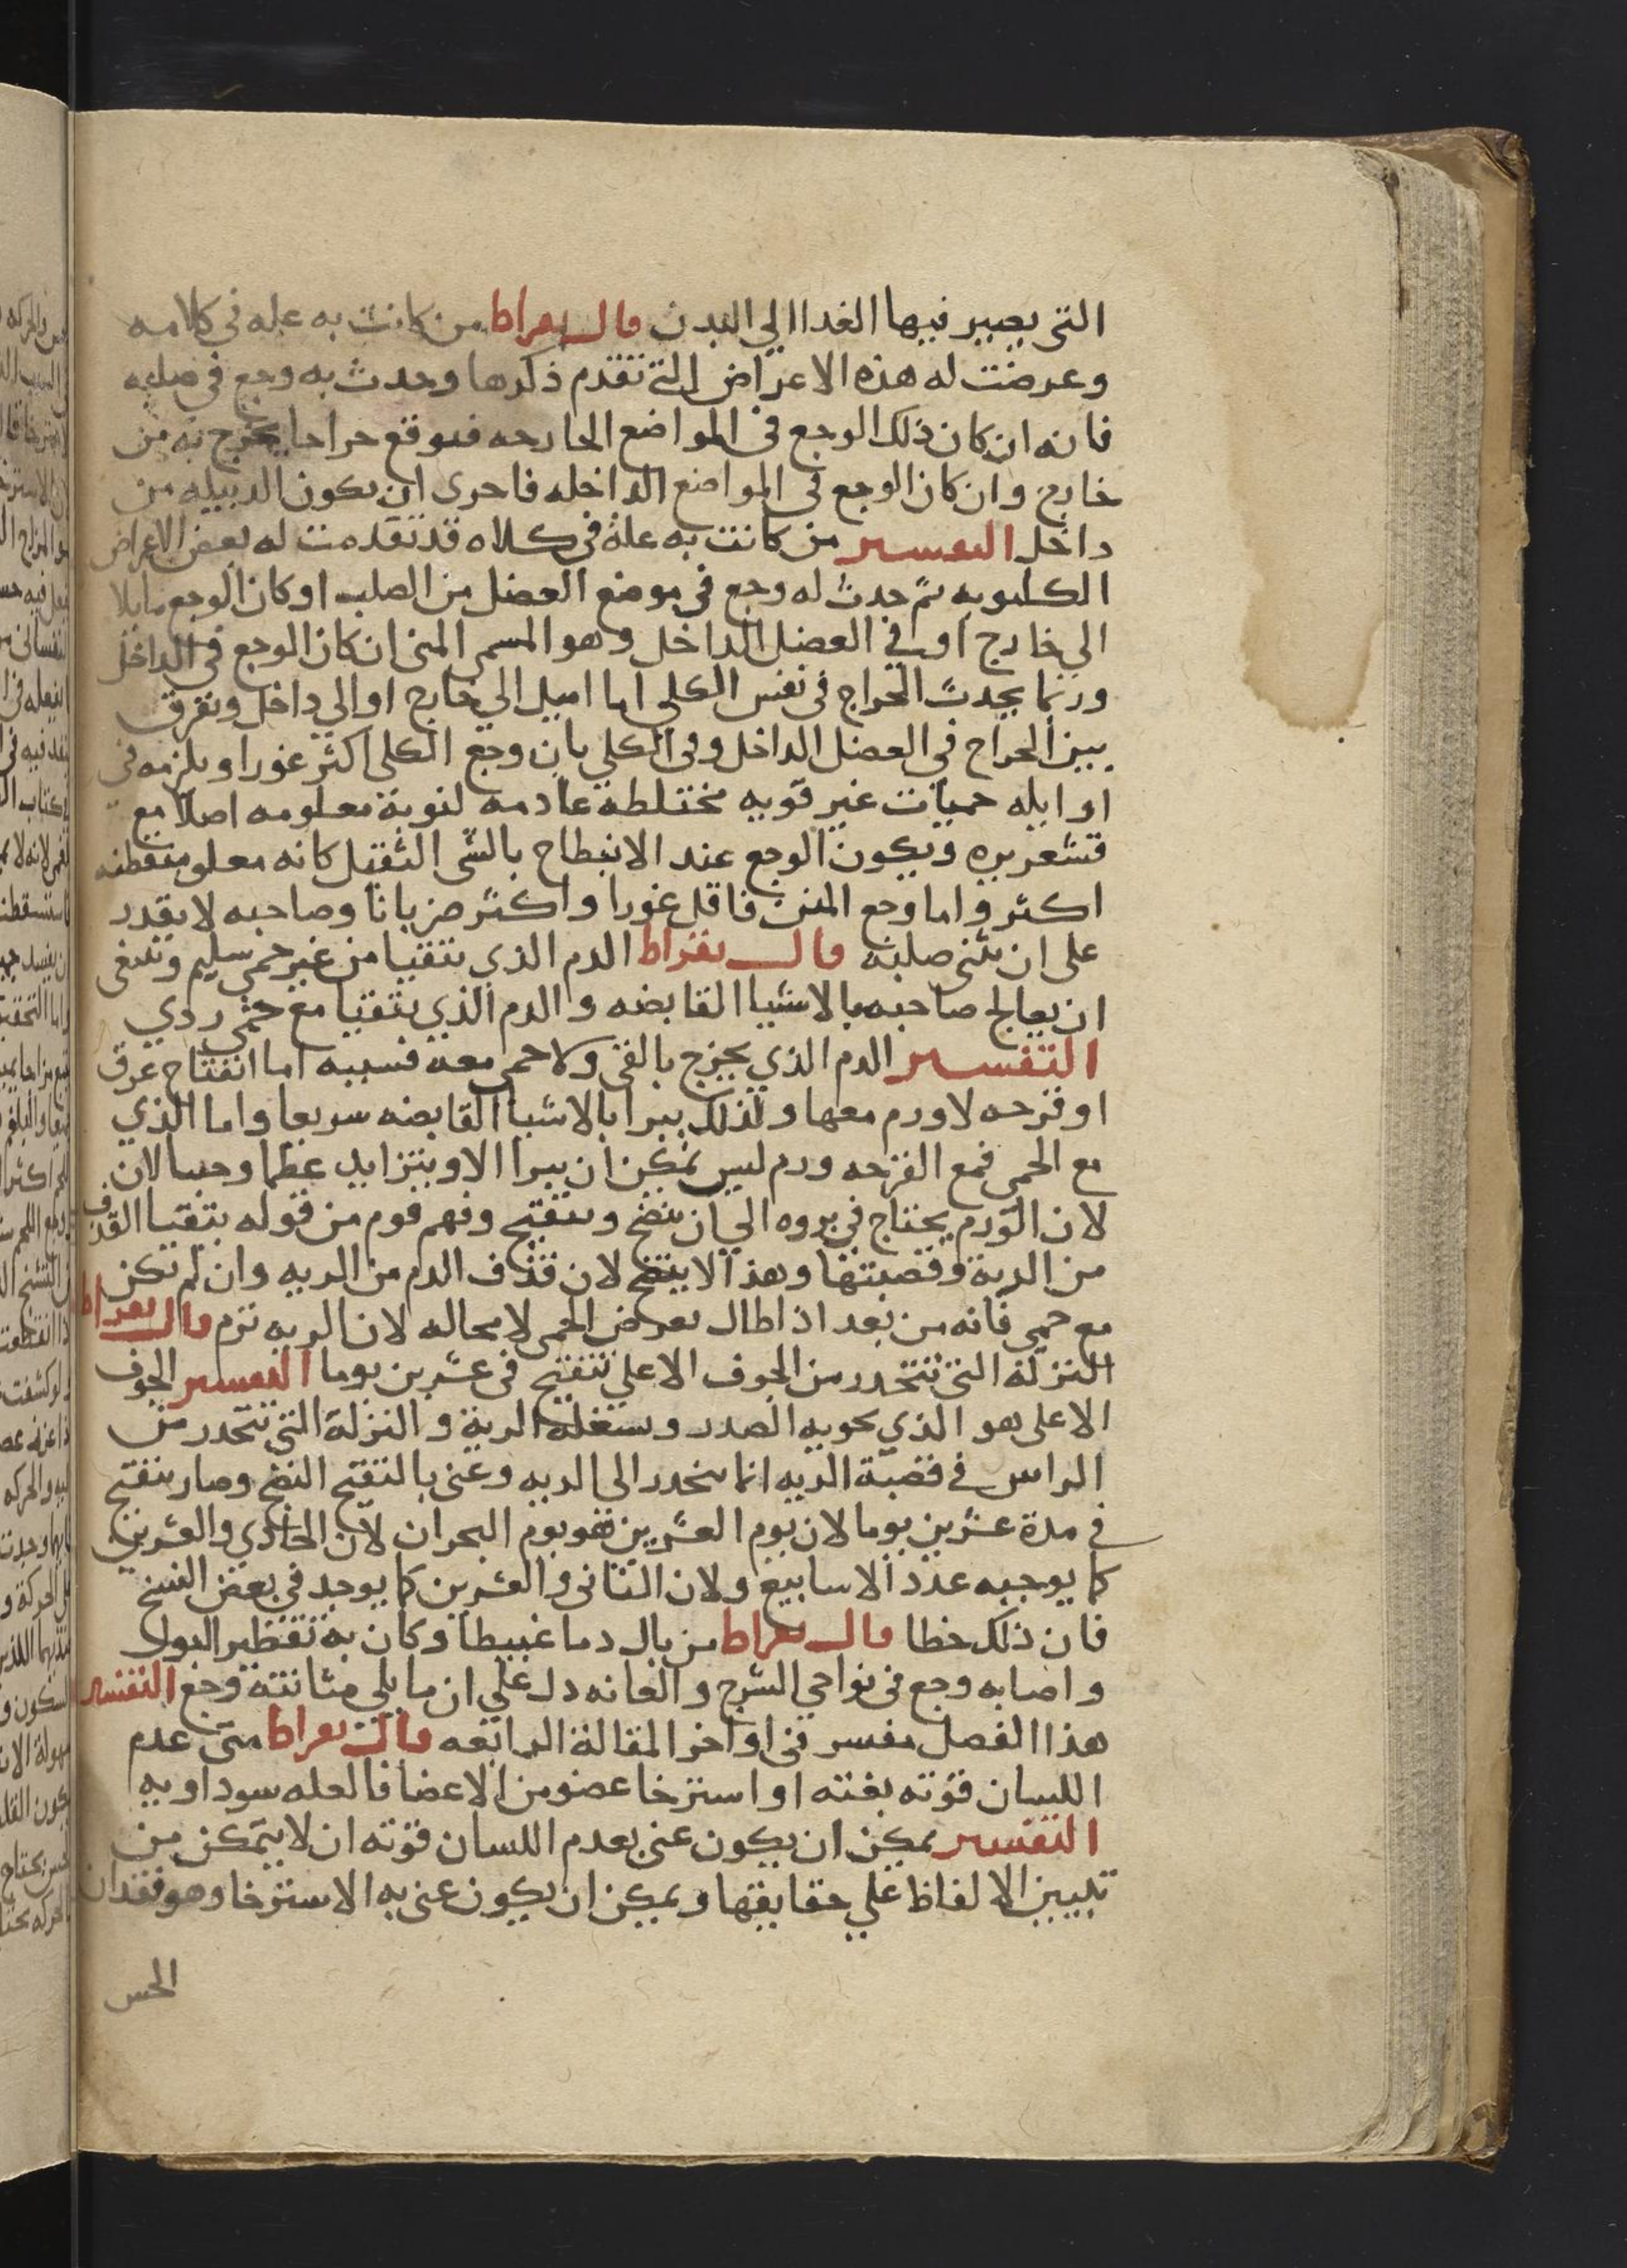 التى يصير فيها الغدا الي البدن قال بقراط من كانت به عله في كلامه
وعرضت له هذه الاعراض التى تقدم ذكرها وحدث به وجع في صلبه
فانه ان كان ذلك الوجع في المواضع الخارجه فتوقع خراجا يخرج به من
خارج وان كان الوجع في المواضع الداخله فاحرى ان يكون الدبيله من
داخل التفسير من كانت به علة في كلاه قد تقدمت له بعض الاعراض
الكلبويه ثم حدث له وجع في موضع العضل من الصلب او كان الوجع مايلا
الي خارج او في العضل الداخل وهو المسمى المتن ان كان الوجع في الداخل
وربما يحدث الخراج في نفس الكلي اما اميل الي خارج او الي داخل وتفرق
بين الخراج في العضل الداخل وفي الكلي بان وجع الكلى اكثر غورا ويلزمه في
اوايله حميات غير قويه مختلطه عادمه لنوبة معلومه اصلا مع
قشعريره ويكون الوجع عند الانبطاح بالشى الثقيل كانه معلق منقطنه
اكثر واما وجع المتن فاقل غورا واكثر ضربانا وصاحبه لا يقدر
على ان يثنى صلبه قال بقراط الدم الذي يتقيا من غير حمي سليم وينبغى
ان يعالج صاحبه بالاشيا القابضه والدم الذي يتقيا مع حمي ردي
التفسير الدم الذي يخرج بالقى ولا حمى معه فسببه اما انفتاح عرق
او قرحه لا ورم معها ولذلك يبرا بالاشيا القابضه سريعا واما الذي
مع الحمى فمع القرحه ورم ليس يمكن ان يبرا الا ويتزايد عظما وحسالان
لان الورم يحتاج في بروه الي ان ينضج ويتقيح وفهم قوم من قوله يتقيا القذف
من الرية وقصبتها وهذا لا يتضح لان قذف الدم من الريه وان لم تكن
مع حمي فانه من بعد اذا طال تعرض الحمى لا محاله لان الريه ترم قال بقراط
النزلة التى تنحدر من الجوف الاعلي تتقيح في عشرين يوما التفسير الجوف
الاعلى هو الذي يحويه الصدر وتشغله الرية والنزلة التى تتحدر من
الراس في قصبة الريه انما ينحدر الى الريه وعنى بالتقيح النضج وصار يتقيح
في مدة عشرين يوما لان يوم العشرين هو يوم البحران لان الحادي والعشرين
كما يوجبه عدد الاسابيع ولان الثانى والعشرين كما يوجد في بعض النسخ
فان ذلك خطا قال بقراط من بال دما غبيطا وكان به تقطير البول
واصابه وجع في نواحي الشرج والعانه دل علي ان ما يلي مثانته وجع التفسير
هذا الفصل مفسر في اواخر المقالة الرابعه قال بقراط متى عدم
اللسان قوته بغته او استرخا عضو من الاعضا فالعله سوداويه
التفسير يمكن ان يكون عنى بعدم اللسان قوته ان لا يتمكن من
تبيين الالفاظ علي حقايقها ويمكن ان يكون عنى به الاسترخا وهو فقدان
الحس